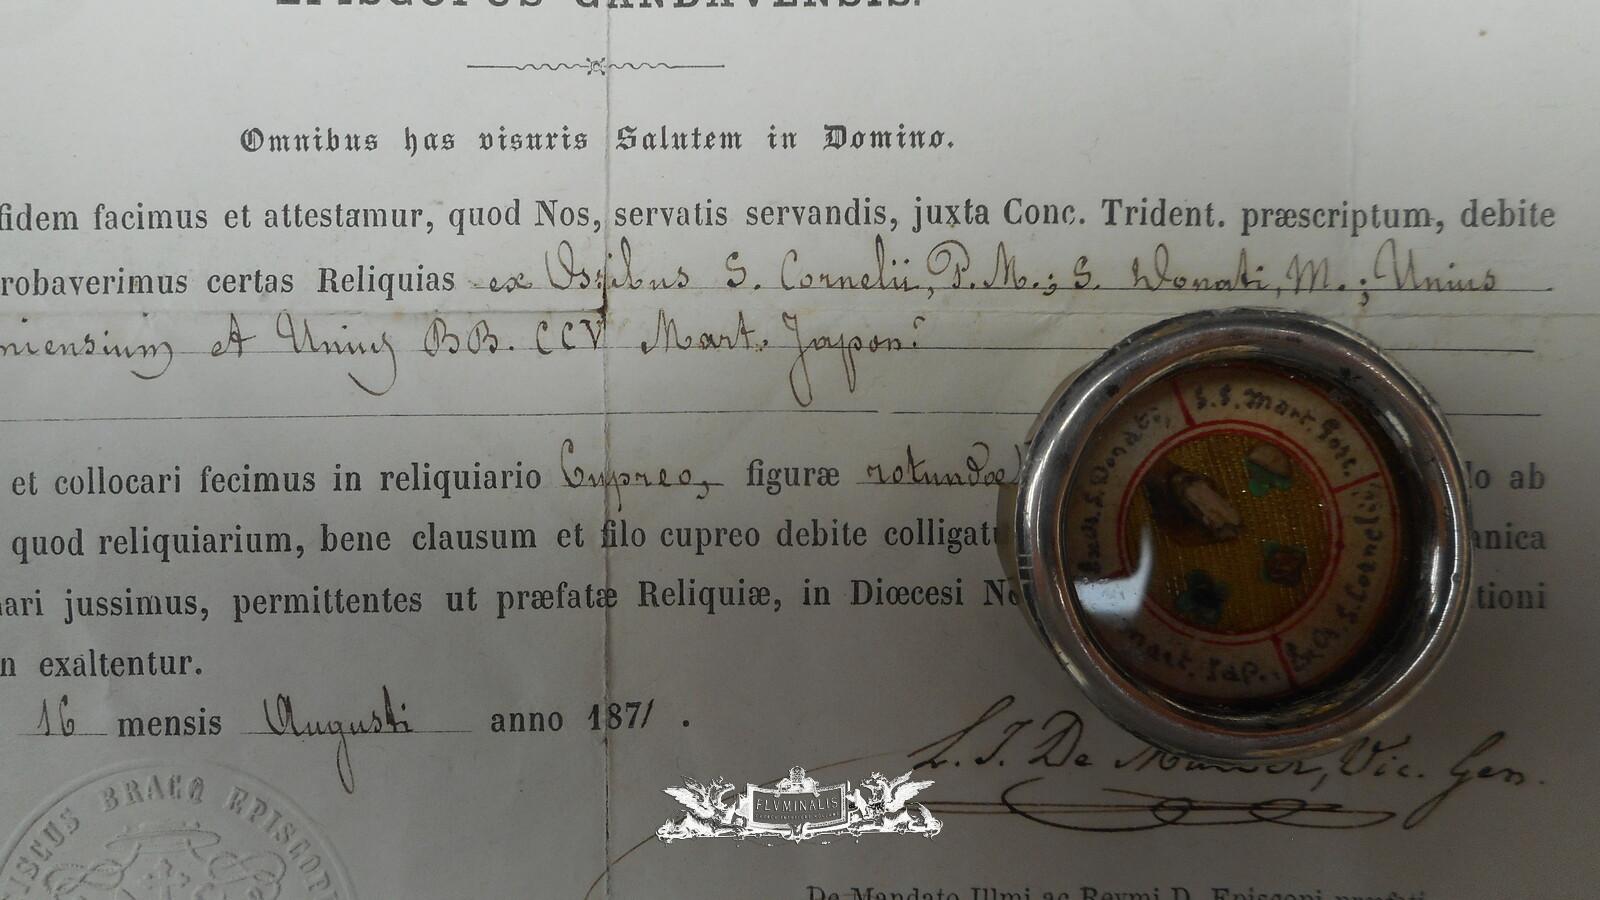 EPISCOPUS GANDAVENSIS.
Omnibus has visuris Salutem in Domino.
fidem facimus et attestamur, quod Nos, servatis servandis, juxta Conc. Trident. præscriptum, debite
robaverimus certas Reliquias ex Ossibus S. Cornelii, P. M.; S. Donati, M.; Unius
niensium et Unius BB. CCV Mart. Japon.
et collocari fecimus in reliquiario Cupreo, figuræ rotundæ lo ab
quod reliquiarium, bene clausum et filo cupreo debite colligat anica
ari jussimus, permittentes ut præfatæ Reliquiæ, in Diœcesi No tioni
n exaltentur.
16 mensis Augusti anno 1871 .
S.S. Mart. Gorc.
S. Cornelii
Mart. Jap.
S. Donati,
L. J. De Vic. Gen.
ISCUS BRACQ EPISCOP
FLVMINALIS
De Mandato Illmi ac Revmi D. Episcopi præfati